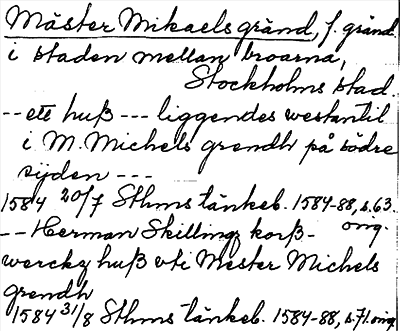 Mäster Mikaels gränd, f. gränd
i staden mellan broarna,
Stockholms stad.
-- ett huß --- liggendes westantil
i M. Michels grendh på södre
sijden ---
1584 20/7 Sthms tänkeb. 1584-88, s. 63.
orig.
-- Herman Skilling korß-
werckz huß vti Mester Michels
grendh
1584 31/8 Sthms tänkeb. 1584-88, s. 71. orig.